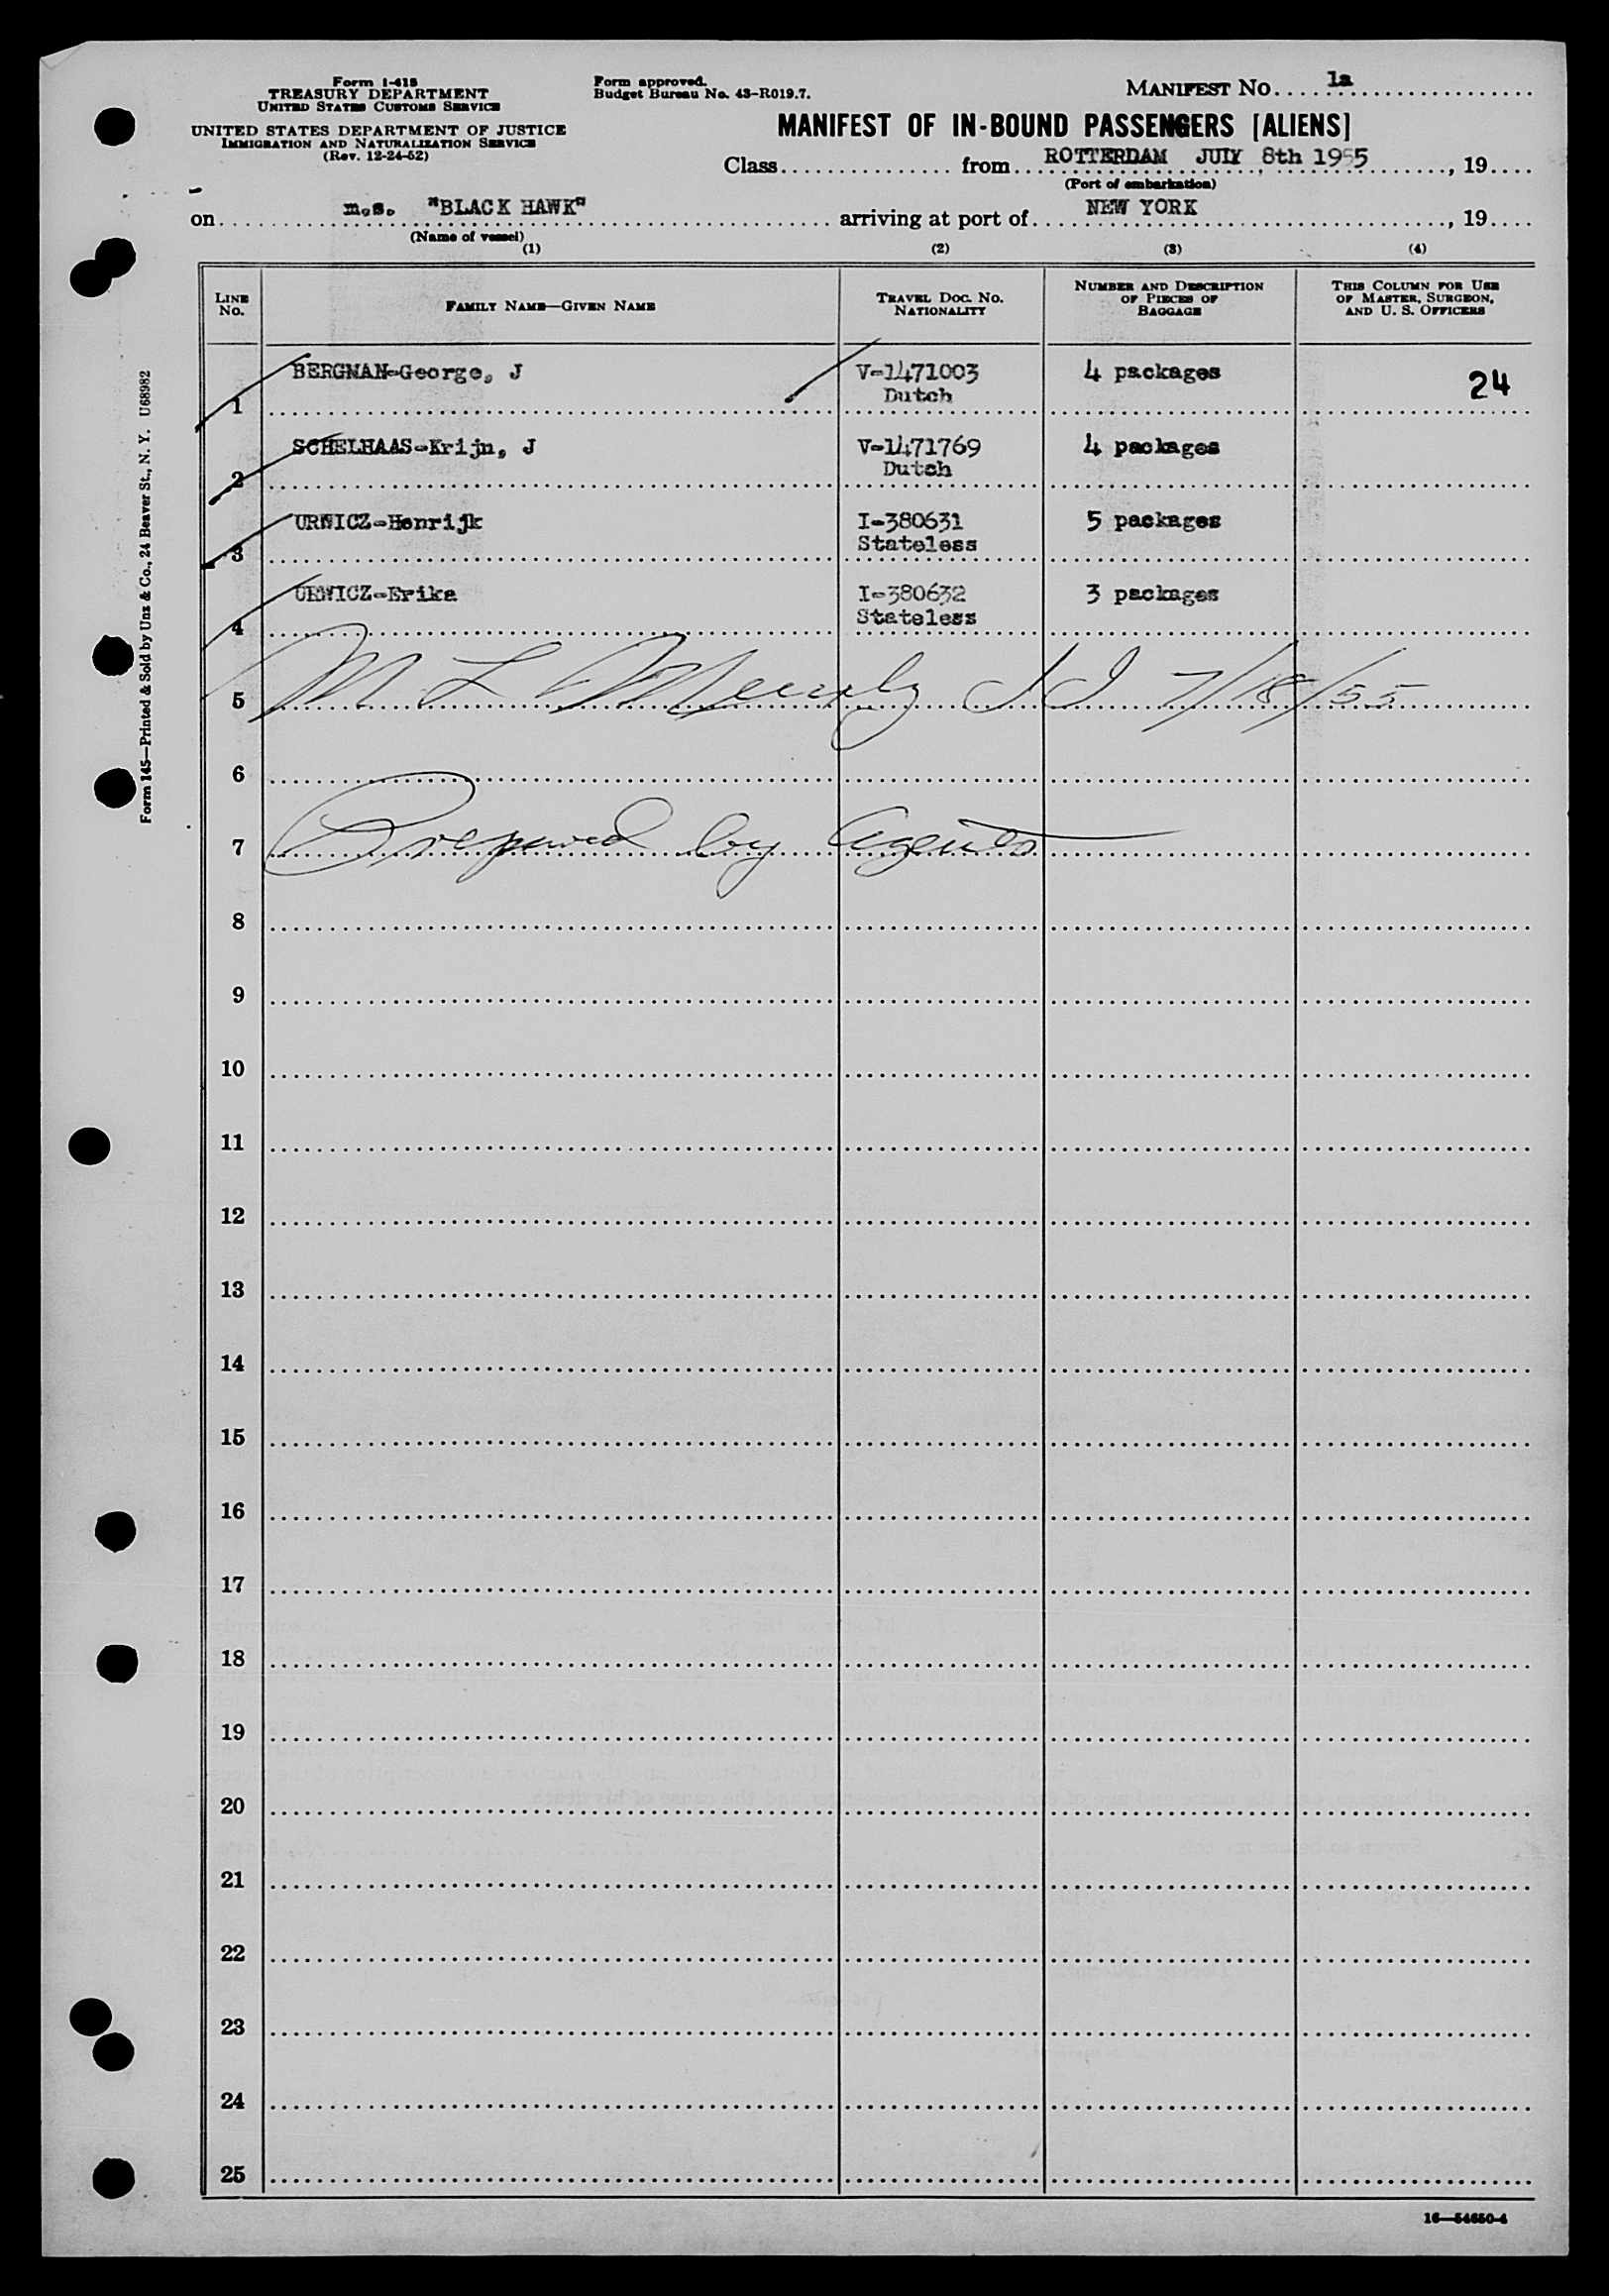 Form I-418
TREASURY DEPARTMENT
UNITED STATES CUSTOMS SERVICE
UNITED STATES DEPARTMENT OF JUSTICE
IMMIGRATION AND NATURALIZATION SERVICE
(Rev. 12-24-52)
Form approved.
Budget Bureau No. 43-R019.7.
MANIFEST No. 1a
MANIFEST OF IN-BOUND PASSENGERS [ALIENS]
Class from ROTTERDAM JULY 8th 1955, 19
(Port of embarkation)
on m.s. "BLACK HAWK" arriving at port of NEW YORK, 19
(Name of vessel)
(1) (2) (3) (4)
LINE No. FAMILY NAME—GIVEN NAME TRAVEL DOC. NO. NATIONALITY NUMBER AND DESCRIPTION OF PIECES OF BAGGAGE THIS COLUMN FOR USE OF MASTER, SURGEON, AND U. S. OFFICERS
1 BERGMAN-George, J V-1471003 Dutch 4 packages 24
2 SCHELHAAS-Krijn, J V-1471769 Dutch 4 packages
3 URWICZ-Henrijk I-380631 Stateless 5 packages
4 URWICZ-Erika I-380632 Stateless 3 packages
5 M L 7/18/55
6
7 Prepared by Agents
8
9
10
11
12
13
14
15
16
17
18
19
20
21
22
23
24
25
16—54650-4
Form 145—Printed & Sold by Unz & Co., 24 Beaver St., N. Y. U68982